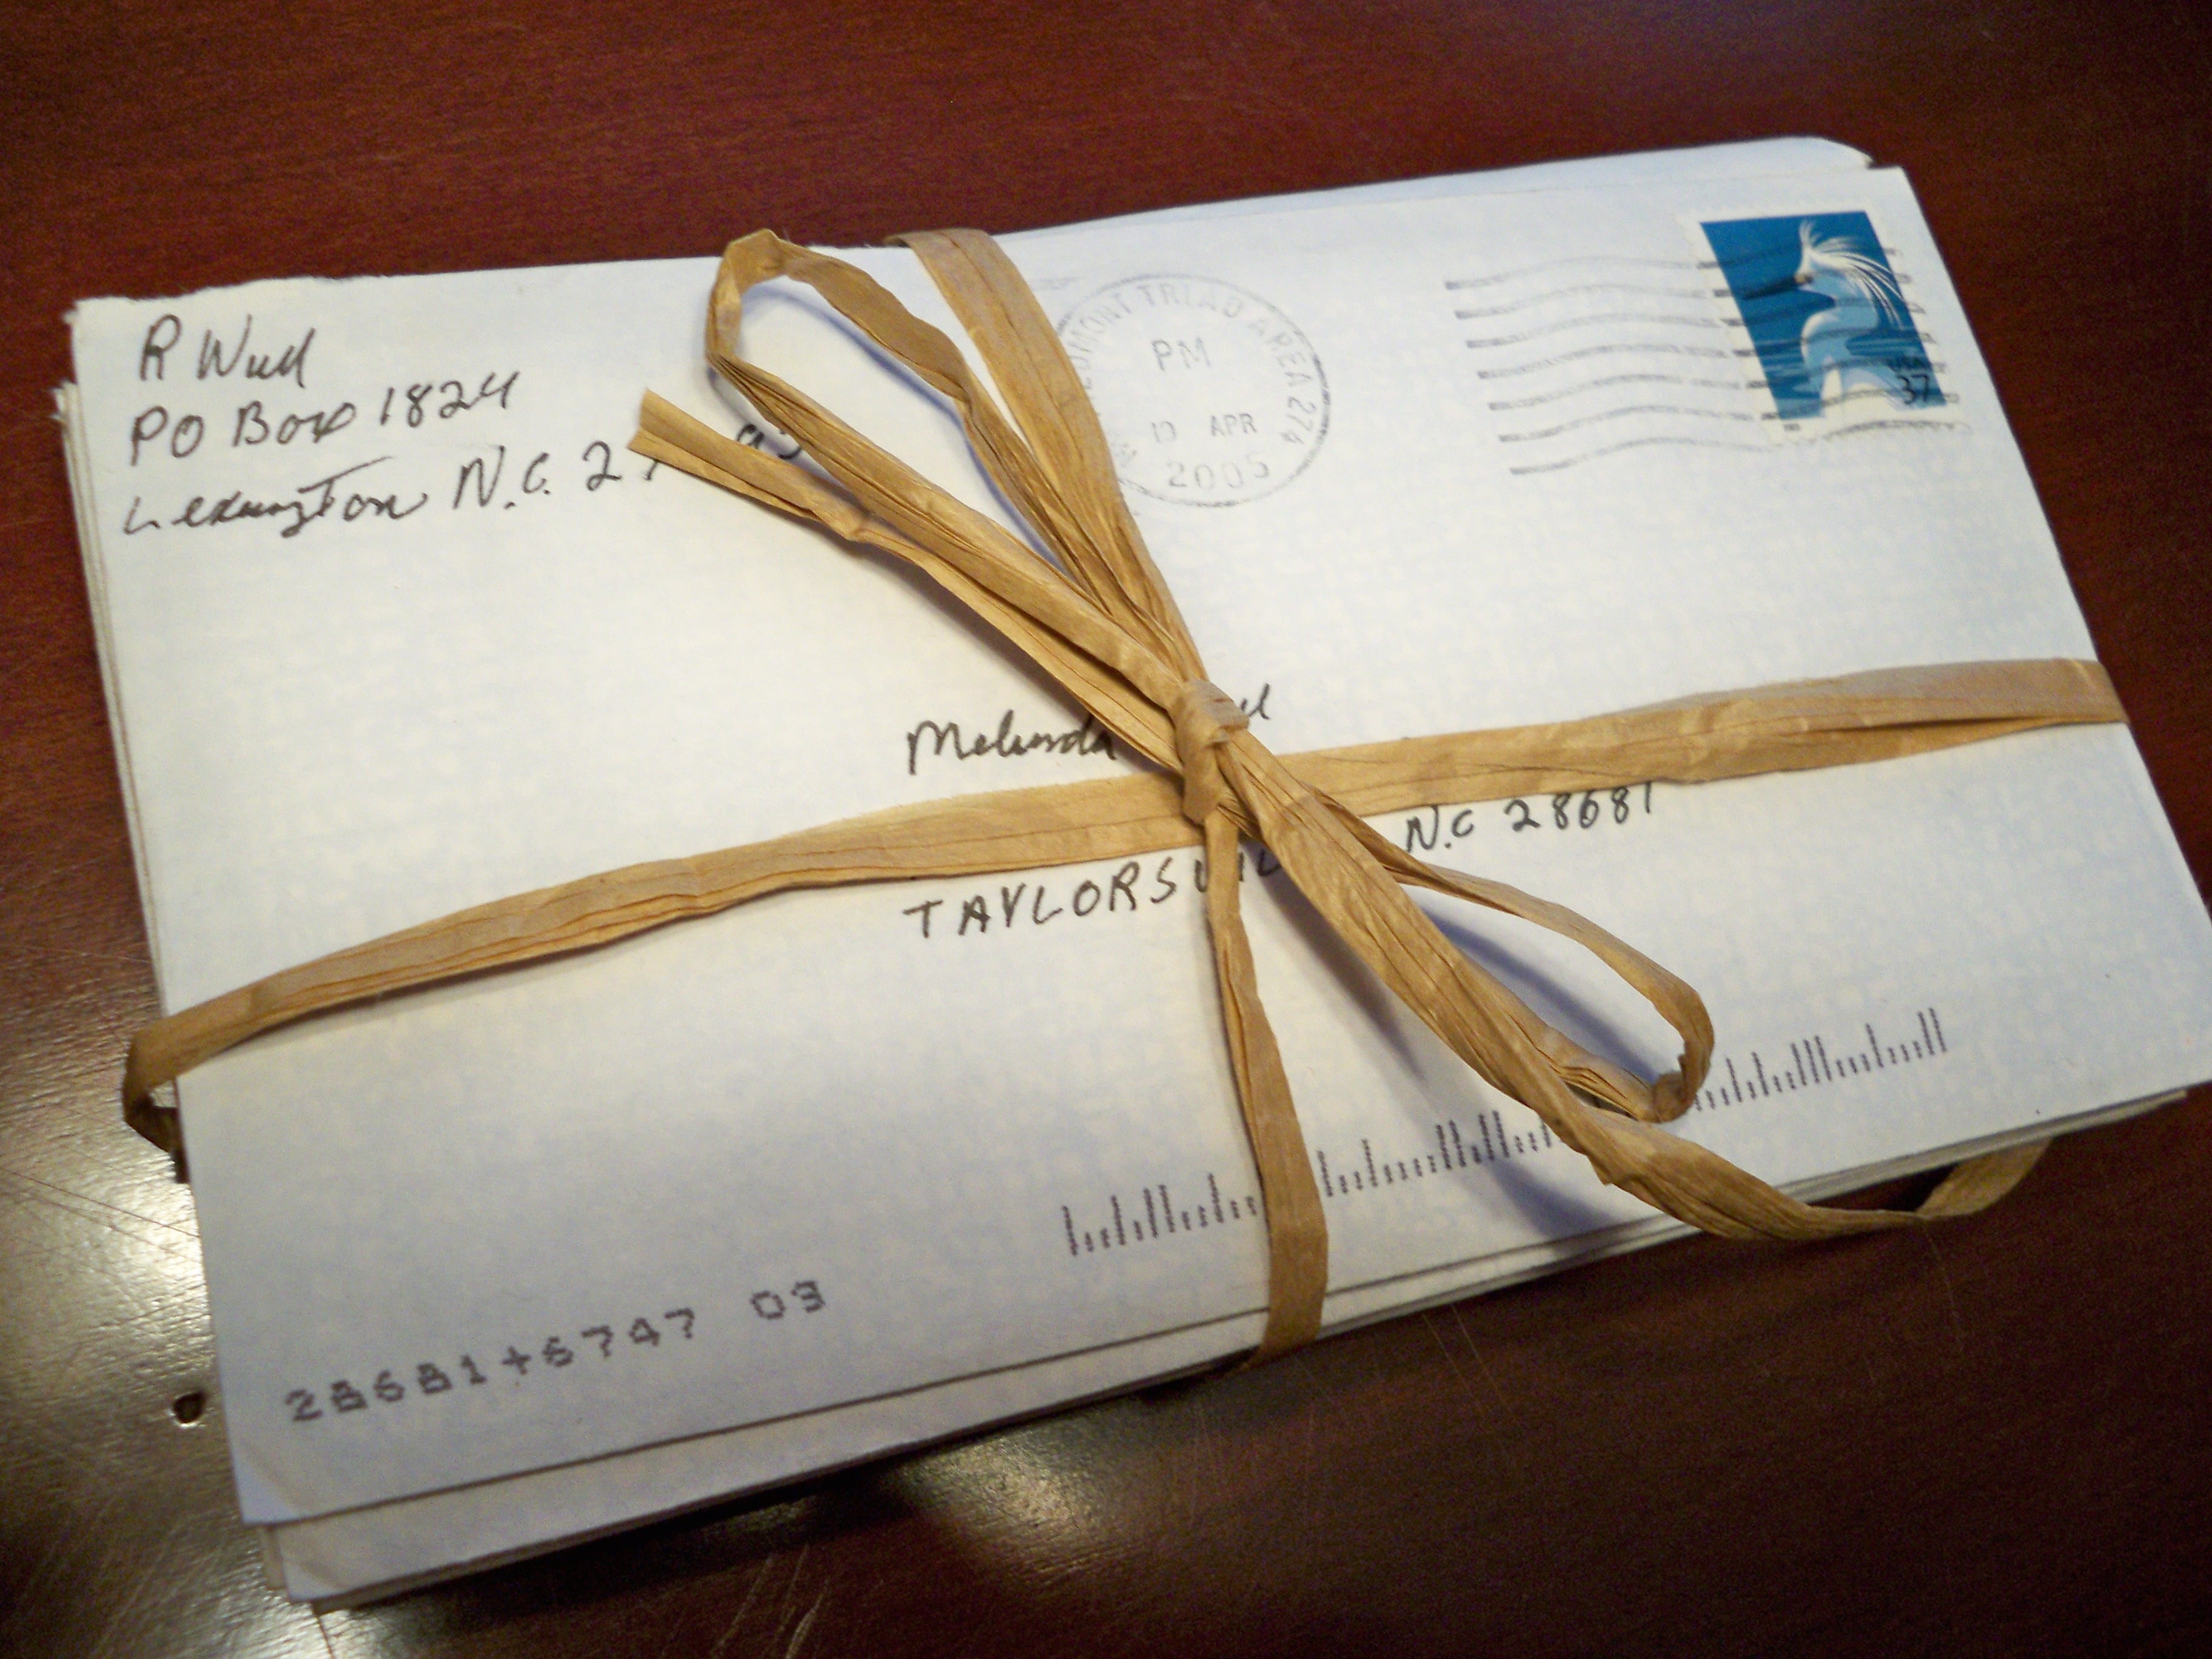 R Wull
PO Box 1824
Lexington N.C. 2
PIEDMONT TRIAD AREA 274
PM
19 APR
2005
USA
37
Melinda
TAYLORSVIL N.C 28681
28681+6747 03